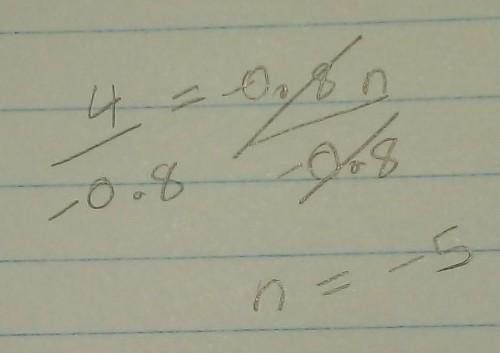 4 = -0.8 n
-0.8 -0.8
n = -5